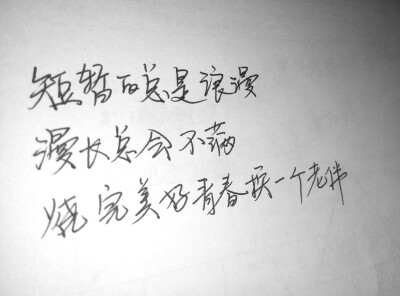 短暂的总是浪漫
漫长总会不满
烧完美好青春换一个老伴